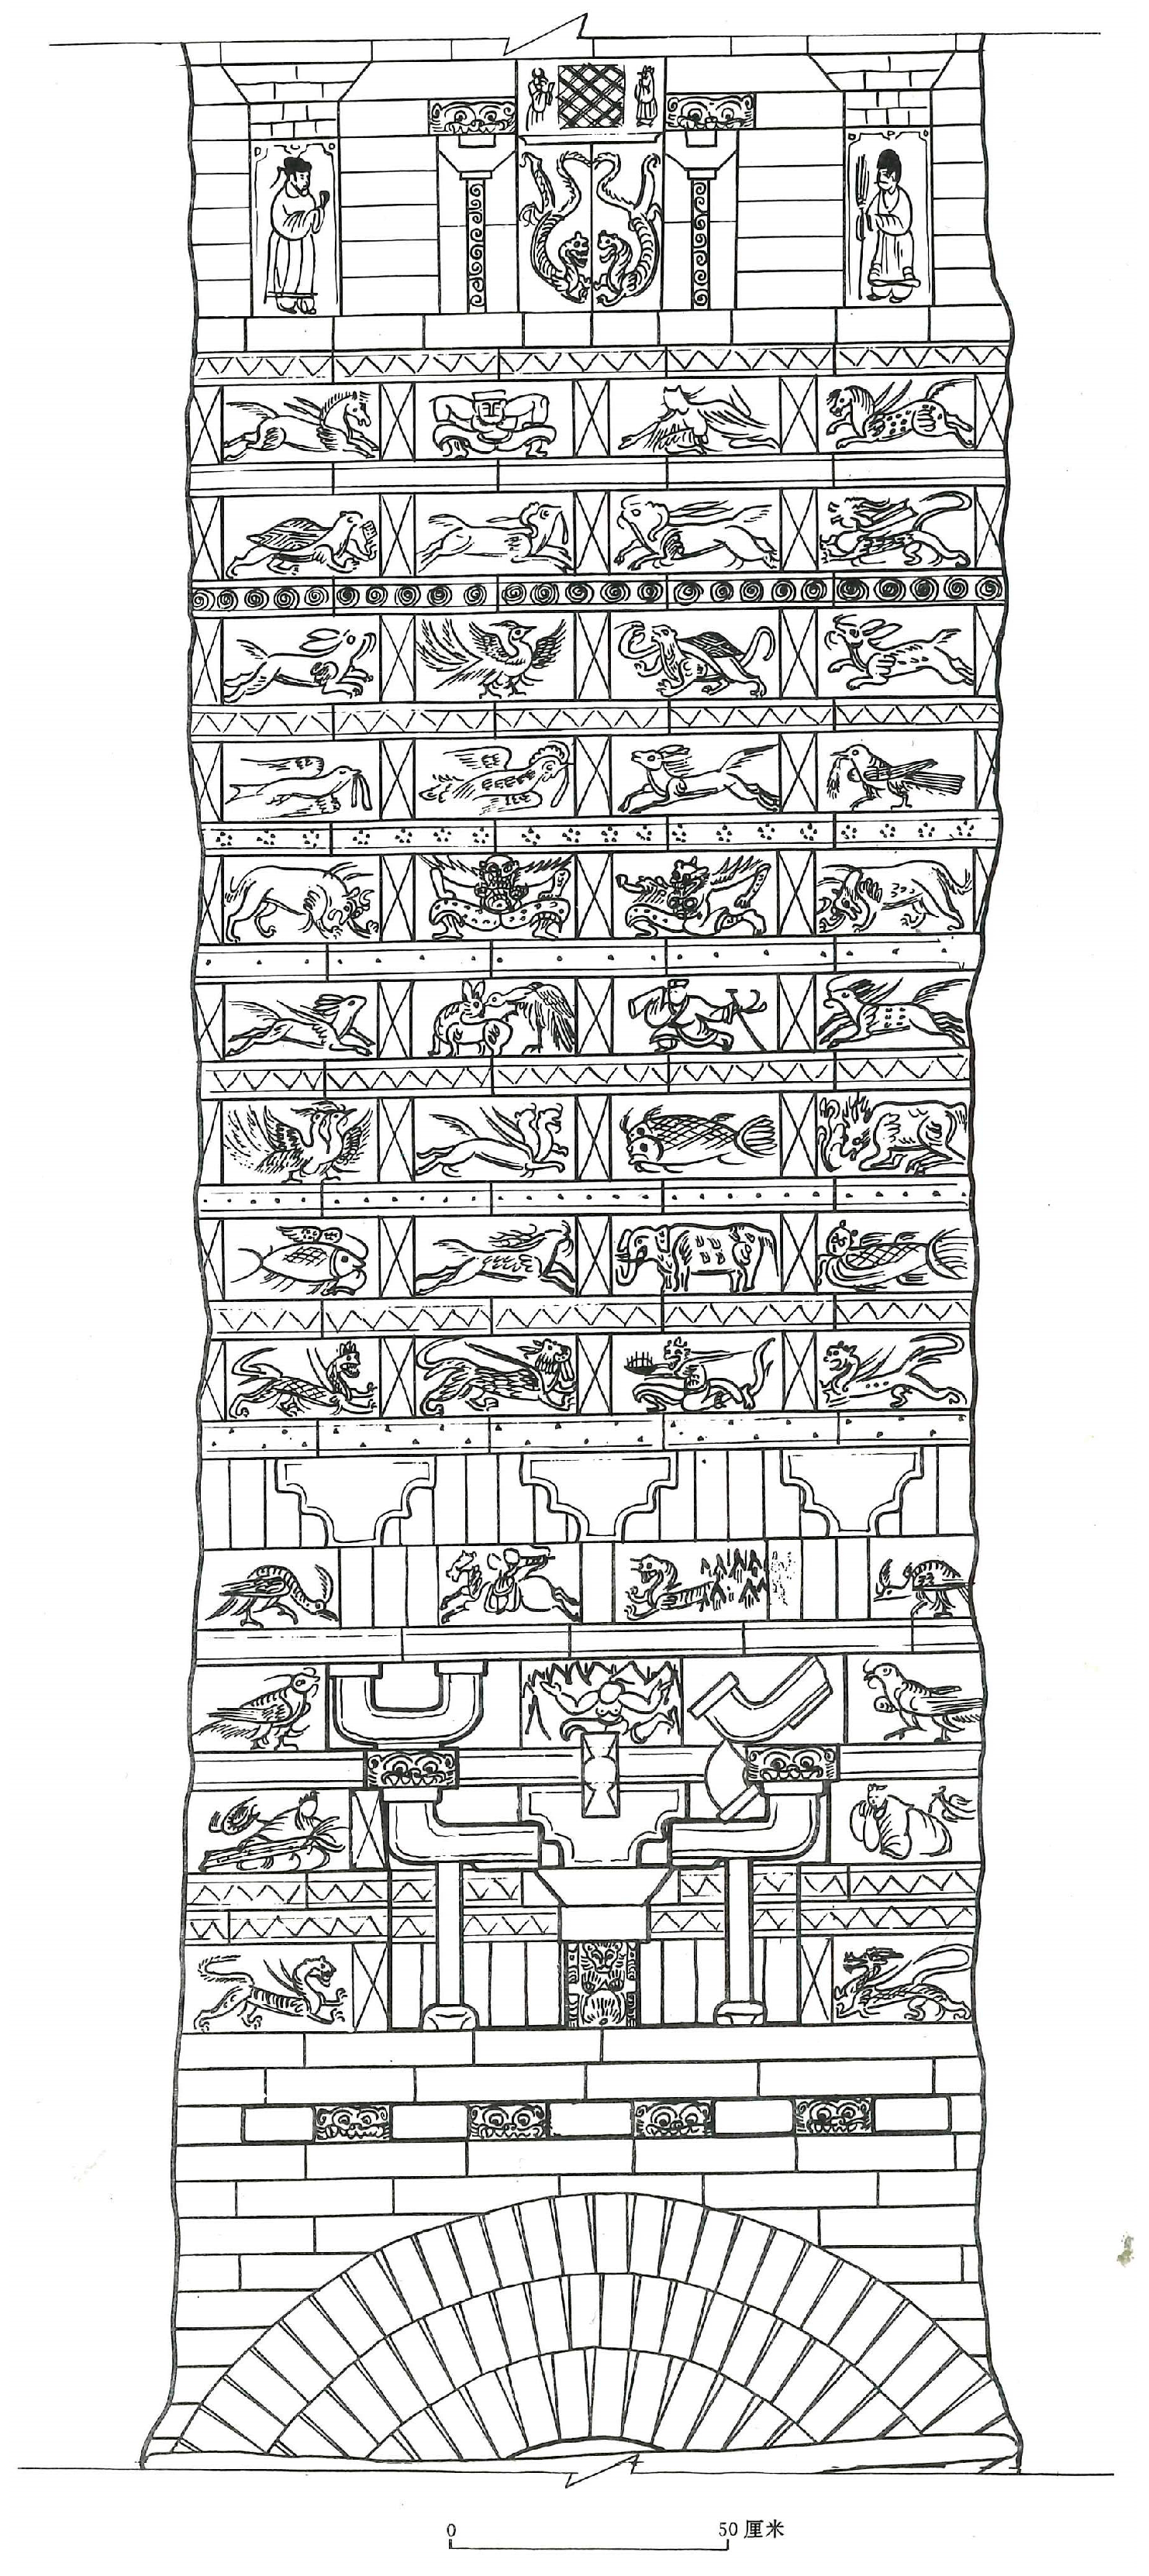 0 50 厘米